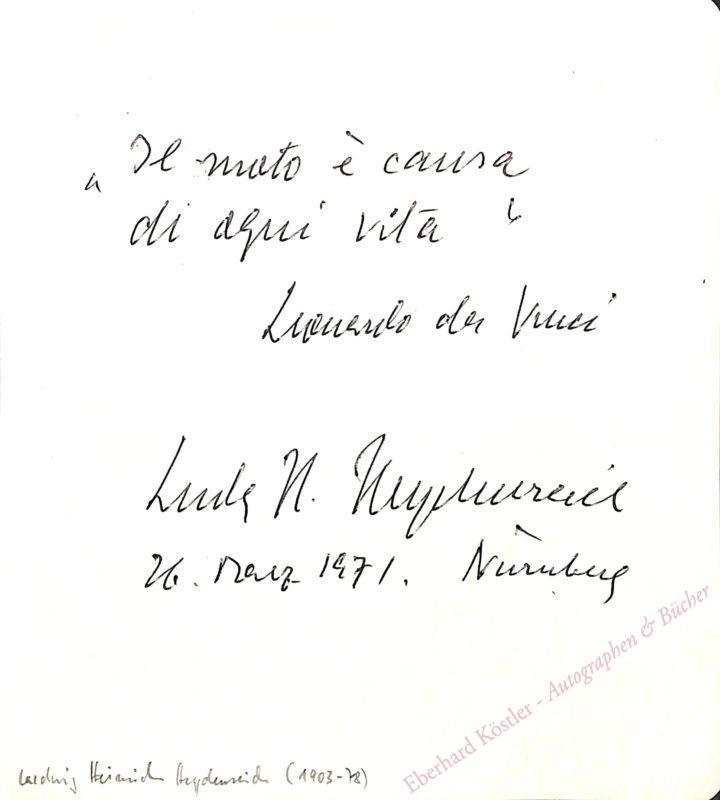 „ Il moto è causa
di ogni vita “
Leonardo da Vinci
Ludw H. Heydenreich
26. März 1971. Nürnberg
Eberhard Köstler - Autographen & Bücher
Ludwig Heinrich Heydenreich (1903-78)